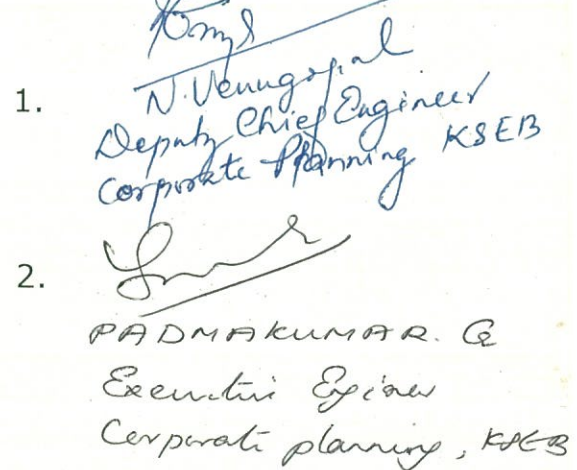 1.
N. Venugopal
Deputy Chief Engineer
Corporate Planning KSEB
2.
PADMAKUMAR. G
Executive Engineer
Corporate planning, KSEB